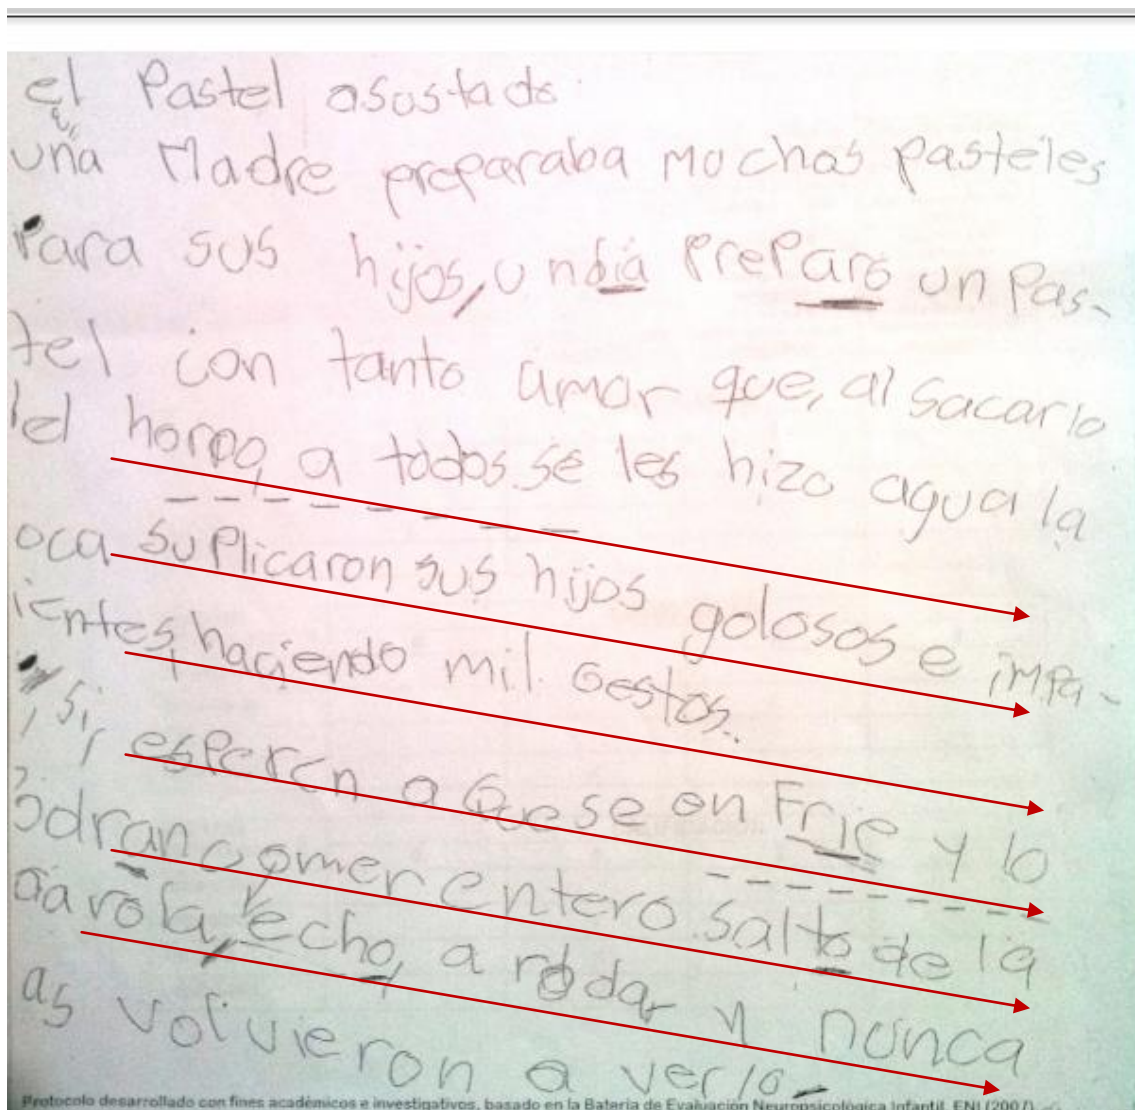 el Pastel asustado
una Madre preparaba Muchos pasteles
Para sus hijos, un dia PrePara un Pas-
tel con tanto amor que, al sacarlo
el horno, a todos se les hizo agua la
oca suPlicaron sus hijos golosos e impa-
ientes, haciendo mil Gestos.
, si, esperen a Que se enFrie y lo
odran comer entero. Salto de la
rola, echo, a rodar y nunca
as volvieron a verlo-
Protocolo desarrollado con fines académicos e investigativos, basado en la Batería de Evaluación Neuropsicológica Infantil, ENI (2007).